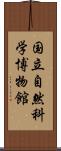 国立自然科
学博物館